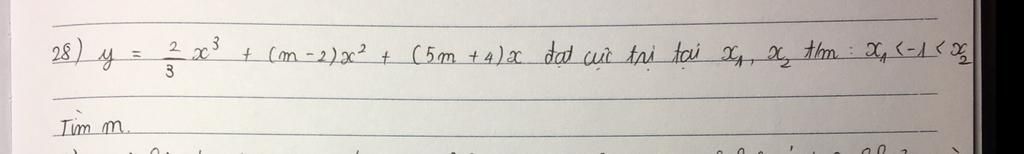 28) y = 2/3 x³ + (m-2)x² + (5m+4)x đạt cực trị tại x₁, x₂ t/m : x₁ < -1 < x₂
Tìm m.